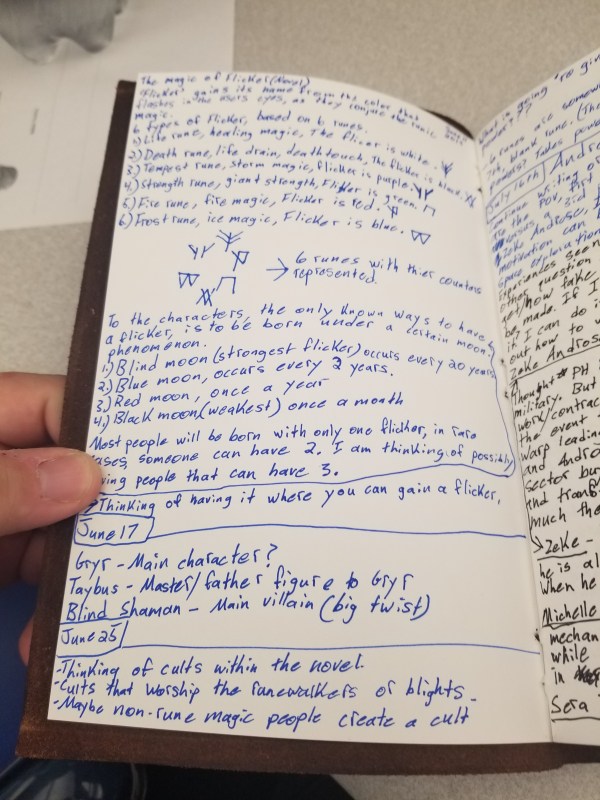 The magic of Flicker (Novel)
"Flicker" gains its name from the color that
flashes in the users eyes, as they conjure the runic
magic.
6 types of flicker, based on 6 runes.
1.) Life rune, healing magic, The flicker is white.
2.) Death rune, life drain, death touch, The flicker is black.
3.) Tempest rune, storm magic, flicker is purple.
4.) Strength rune, giant strength, Flicker is green.
5.) Fire rune, fire magic, Flicker is red.
6.) Frost rune, ice magic, Flicker is blue.
6 runes with thier counters
represented.
To the characters, the only known ways to have
a flicker, is to be born under a certain moon
phenomenon.
1.) Blind moon (strongest flicker) occurs every 20 years
2.) Blue moon, occurs every 2 years.
3.) Red moon, once a year
4.) Black moon (weakest) once a month
Most people will be born with only one flicker, in rare
cases, someone can have 2. I am thinking of possibly
people that can have 3.
Thinking of having it where you can gain a flicker.
June 17
Gryr - Main character?
Taybus - Master/father figure to Gryr
Blind Shaman - Main villain (big twist)
June 25
-Thinking of cults within the novel.
-Cults that worship the runewalkers or blights
-Maybe non-rune magic people create a cult
6 runes are somewhat
7th, blank rune. (The
July 16th Andro
writing on
to the POV, first
a 3rd
Zeke Androse,
motivation can
space exploration
question
how fake
be made. If I
if I can do i
out how to w
Zeke Andros
Thought PH
military. But
work/contrac
the event
warp leading
and Andro
sector bu
and transf
much the
Zeke -
he is al
when he
Michelle
mechan
while
in
Sera